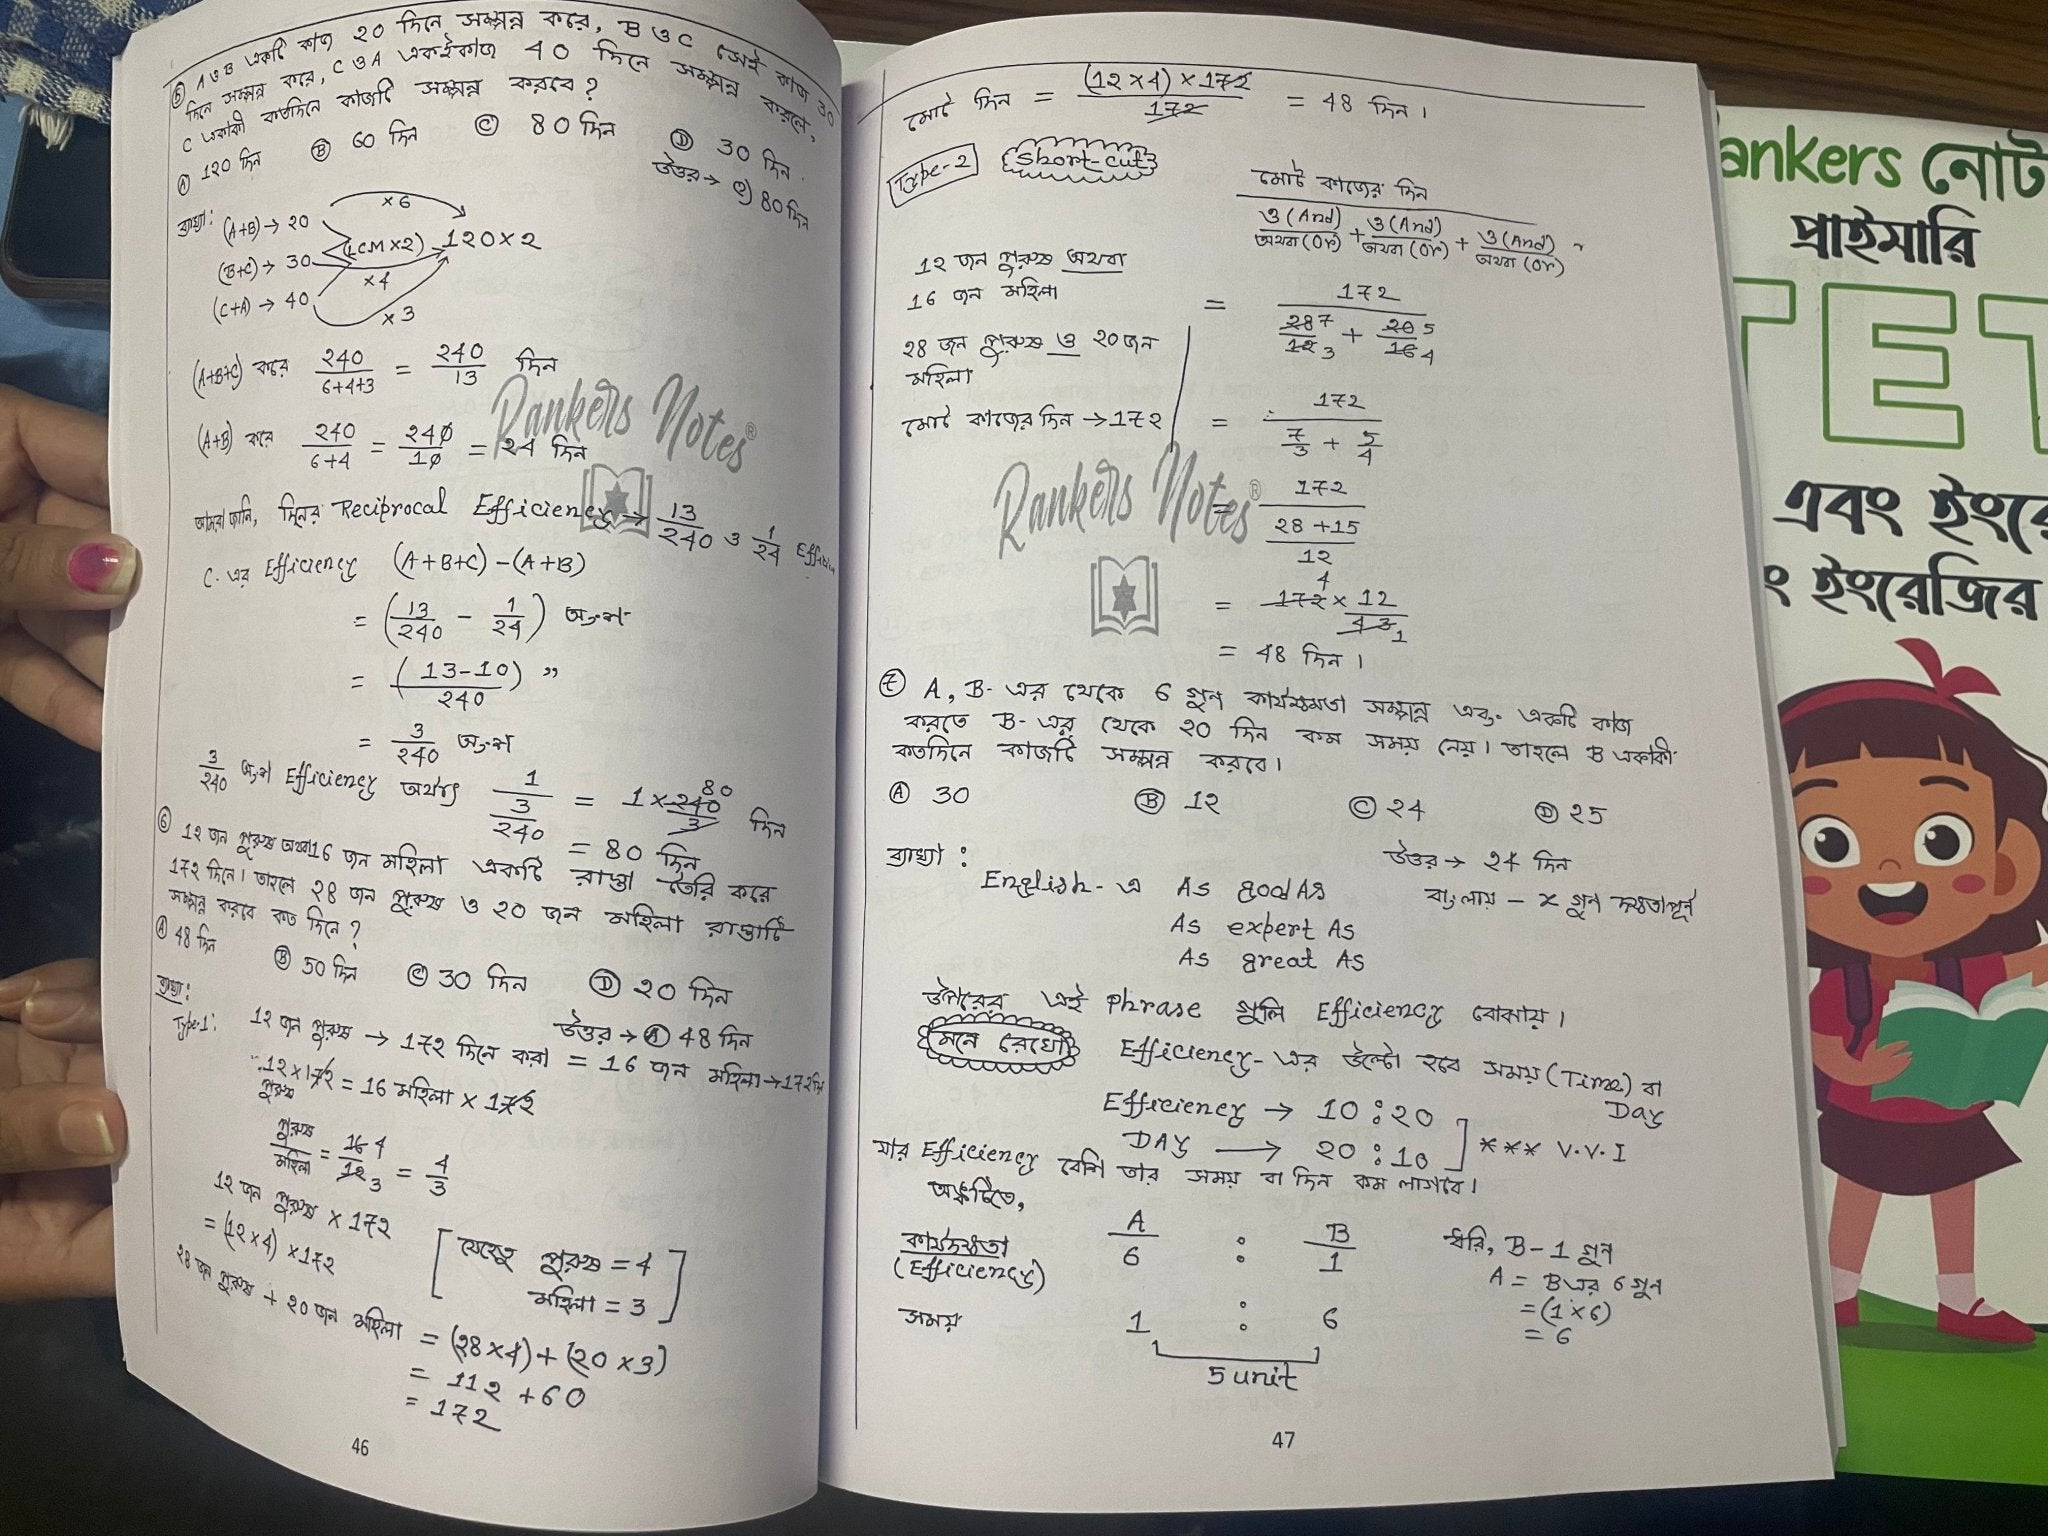 ⑤ A ও B একটি কাজ 20 দিনে সম্পন্ন করে, B ও C সেই কাজ 30
দিনে সম্পন্ন করে, C ও A একইকাজ 40 দিনে সম্পন্ন করলে,
C একাকী কতদিনে কাজটি সম্পন্ন করবে?
Ⓐ 120 দিন Ⓑ 60 দিন Ⓒ 80 দিন Ⓓ 30 দিন.
উত্তর → C) 80 দিন
ব্যাখ্যা: (A+B) → 20 ×6
(B+C) → 30 (LCM×2) 120×2
×4
(C+A) → 40 ×3
(A+B+C) করে 240/(6+4+3) = 240/13 দিন
(A+B) করে 240/(6+4) = 240/10 = 24 দিন
Rankers Notes®
আমরা জানি, দিনের Reciprocal Efficiency → 13/240 ও 1/24
C. এর Efficiency (A+B+C) – (A+B)
= (13/240 – 1/24) অংশ
= (13–10)/240 ”
= 3/240 অংশ
3/240 অংশ Efficiency অর্থাৎ 1/(3/240) = 1×240/3 80 দিন
= 80 দিন
⑥ 12 জন পুরুষ অথবা 16 জন মহিলা একটি রাস্তা তৈরি করে
172 দিনে। তাহলে 28 জন পুরুষ ও 20 জন মহিলা রাস্তাটি
সম্পন্ন করবে কত দিনে?
Ⓐ 48 দিন Ⓑ 50 দিন Ⓒ 30 দিন Ⓓ 20 দিন
উত্তর → Ⓐ 48 দিন
ব্যাখ্যা:
Type-1: 12 জন পুরুষ → 172 দিনে করা = 16 জন মহিলা → 172 দিন
12×172 = 16 মহিলা × 172
পুরুষ
পুরুষ/মহিলা = 16 4/12 3 = 4/3
12 জন পুরুষ × 172
= (12×4) ×172
[যেহেতু পুরুষ = 4
মহিলা = 3]
28 জন পুরুষ + 20 জন মহিলা = (28×4)+(20×3)
= 112 +60
= 172
46
মোট দিন = (12×4)×172/172 = 48 দিন।
Type-2 Short-cut
মোট কাজের দিন
ও(And)/অথবা(Or) + ও(And)/অথবা(Or) + ও(And)/অথবা(Or)
12 জন পুরুষ অথবা
16 জন মহিলা
28 জন পুরুষ ও 20 জন
মহিলা
মোট কাজের দিন → 172
= 172/(28 7/12 3 + 20 5/16 4)
= 172/(7/3 + 5/4)
= 172/((28+15)/12)
= 172 4 × 12/43 1
= 48 দিন।
Rankers Notes®
⑦ A, B- এর থেকে 6 গুন কার্যক্ষমতা সম্পন্ন এবং একটি কাজ
করতে B- এর থেকে 20 দিন কম সময় নেয়। তাহলে B একাকী
কতদিনে কাজটি সম্পন্ন করবে।
Ⓐ 30 Ⓑ 12 Ⓒ 24 Ⓓ 25
উত্তর → 24 দিন
ব্যাখ্যা:
English- এ As good As বাংলায় – x গুন দক্ষতাপূর্ণ
As expert As
As great As
উপরের এই Phrase গুলি Efficiency বোঝায়।
মনে রেখো Efficiency- এর উল্টো হবে সময় (Time) বা
Day
Efficiency → 10 : 20
DAY → 20 : 10 ] *** V.V.I
যার Efficiency বেশি তার সময় বা দিন কম লাগবে।
অঙ্কটিতে,
A : B
কার্যদক্ষতা 6 : 1 ধরি, B – 1 গুন
(Efficiency) A = B এর 6 গুন
= (1×6)
সময় 1 : 6 = 6
5 unit
47
ankers নোট
প্রাইমারি
TET
এবং ইংরে
ইংরেজির